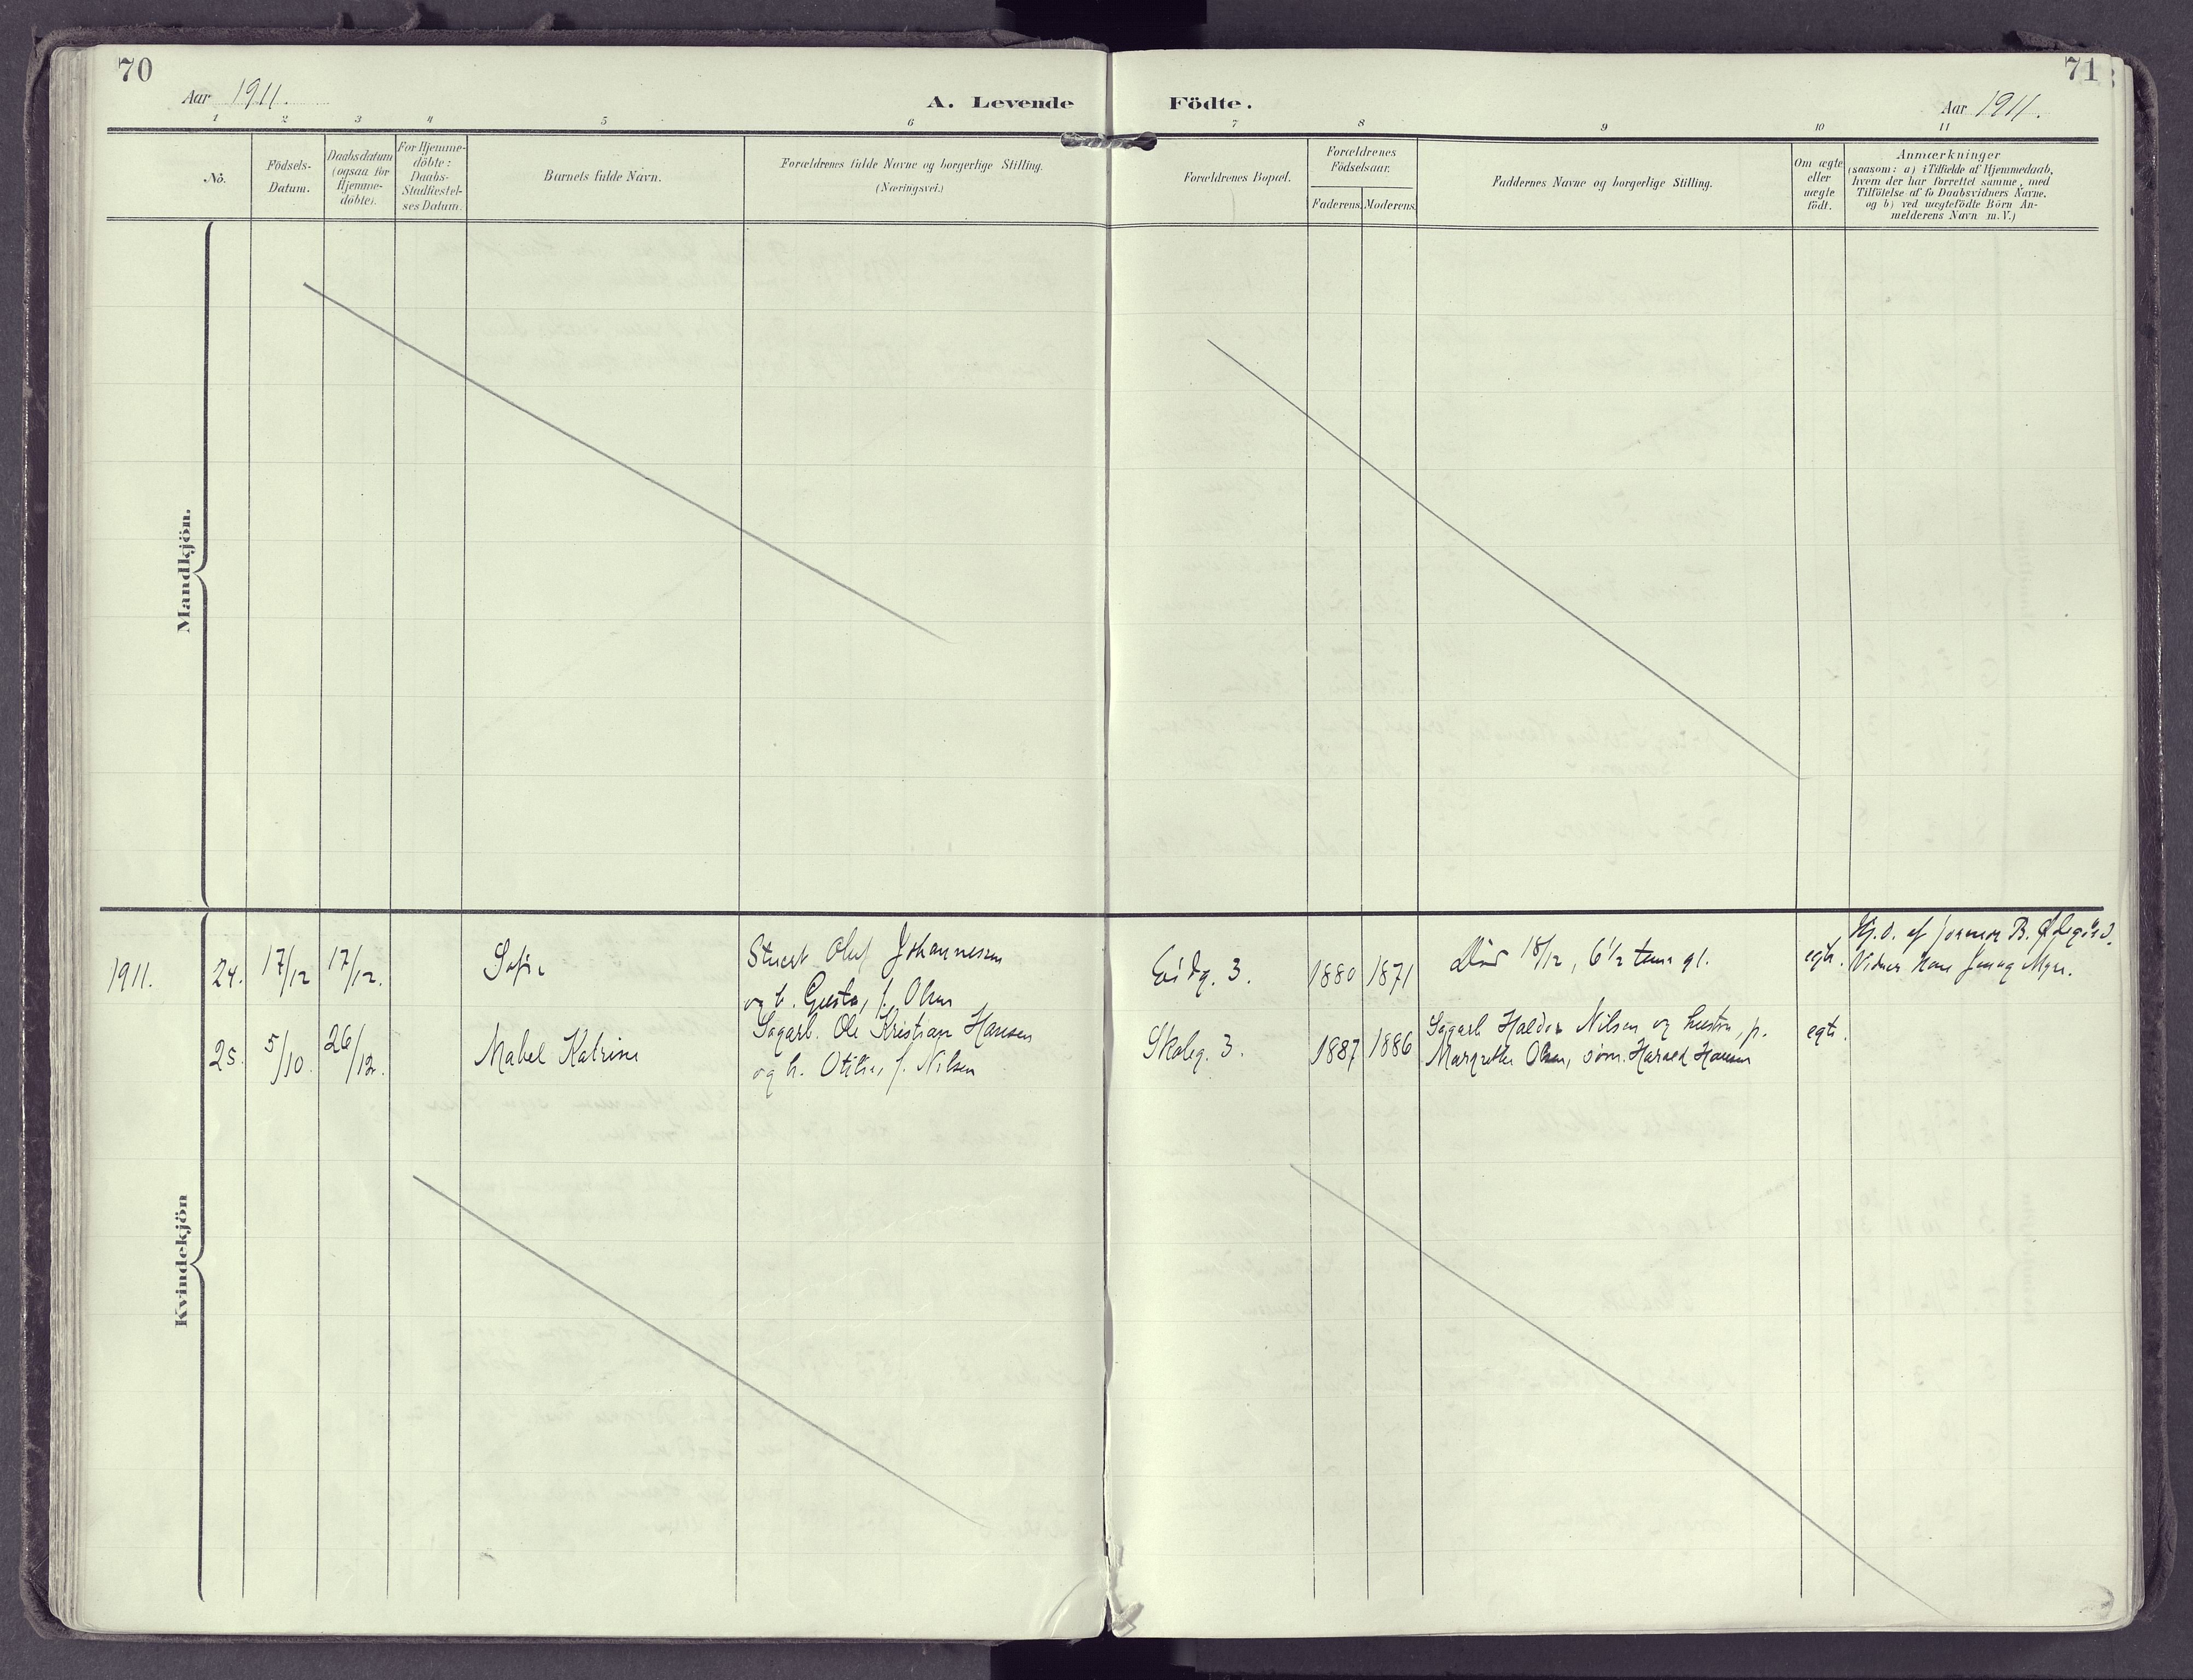 70
Aar 1911.
A. Levende
Födte.
Aar 1911.
71
1
2
3
4
5
6
7
8
9
10
11
No.
Födsels-
Datum.
Daabsdatum
(ogsaa for
Hjemme-
döbte).
For Hjemme-
döbte:
Daabs-
Stadfæstel-
ses Datum.
Barnets fulde Navn.
Forældrenes fulde Navne og borgerlige Stilling.
(Næringsvei.)
Forældrenes Bopæl.
Forældrenes
Födselsaar.
Faderens.
Moderens.
Faddernes Navne og borgerlige Stilling.
Om ægte
eller
uægte
födt.
Anmærkninger
(saasom: a) i Tilfælde af Hjemmedaab,
hvem der har forrettet samme, med
Tilföielse af to Daabsvidners Navne.
og b) ved uægtefödte Börn An-
melderens Navn m. V.)
Mandkjön.
1911.
24.
17/12
17/12.
Sofie
Stuert Oluf Johannesen
og h. Gusta, f. Olsen
Eidg. 3.
1880
1871
Död 18/12, 6 1/2 time gl.
egte.
Hj.d. af jormor B.
Vidner
25.
5/10.
26/12.
Mabel Katrine
Sagarb. Ole Kristian Hansen
og h. Otilie, f. Nilsen
Skoleg. 3.
1887
1886
Sagarb Haldor Nilsen og hustru, p.
Margrethe Olsen, söm. Harald Hansen
egte.
Kvindekjön